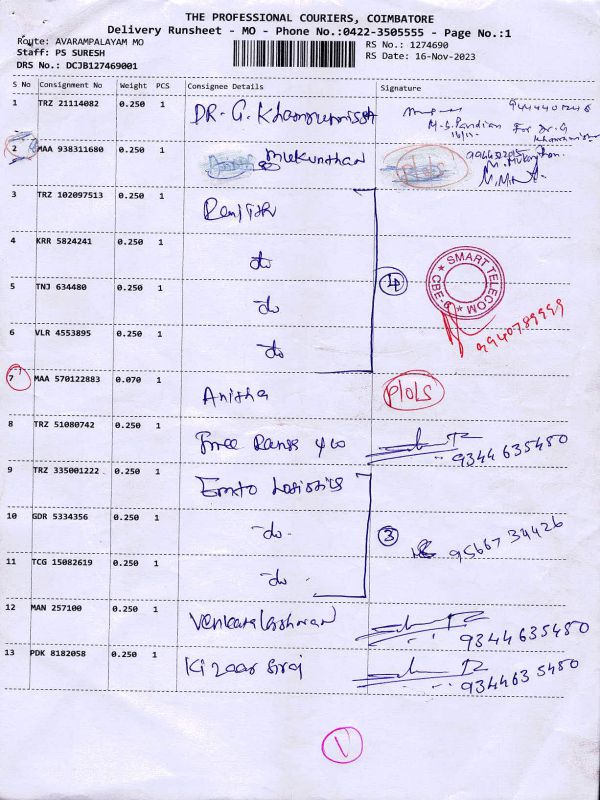 THE PROFESSIONAL COURIERS, COIMBATORE
Delivery Runsheet - MO - Phone No.:0422-3505555 - Page No.:1
Route: AVARAMPALAYAM MO
Staff: PS SURESH
DRS No.: DCJB127469001
RS No.: 1274690
RS Date: 16-Nov-2023
S No Consignment No Weight PCS Consignee Details Signature
1 TRZ 21114082 0.250 1 DR. G.
M.S. Pandian For Dr. G
2 MAA 938311680 0.250 1 Mukunthan
3 TRZ 102097513 0.250 1
4 KRR 5824241 0.250 1 do
5 TNJ 634480 0.250 1 do
4
SMART TELECOM
CBE
9940789999
6 VLR 4553895 0.250 1 do
7 MAA 570122883 0.070 1 Anitha
8 TRZ 51080742 0.250 1
9344635480
9 TRZ 335001222 0.250 1 Logistics
10 GDR 5334356 0.250 1 -do-
3
95667 34426
11 TCG 15082619 0.250 1 -do-
12 MAN 257100 0.250 1
9344635480
13 PDK 8182058 0.250 1
9344635480